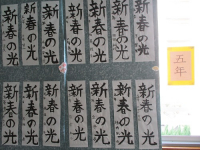 五年
新春の光
新春の光
新春の光
新春の光
新春の光
新春の光
新春の光
新春の光
新春の光
新春の光
新春の光
新春の光